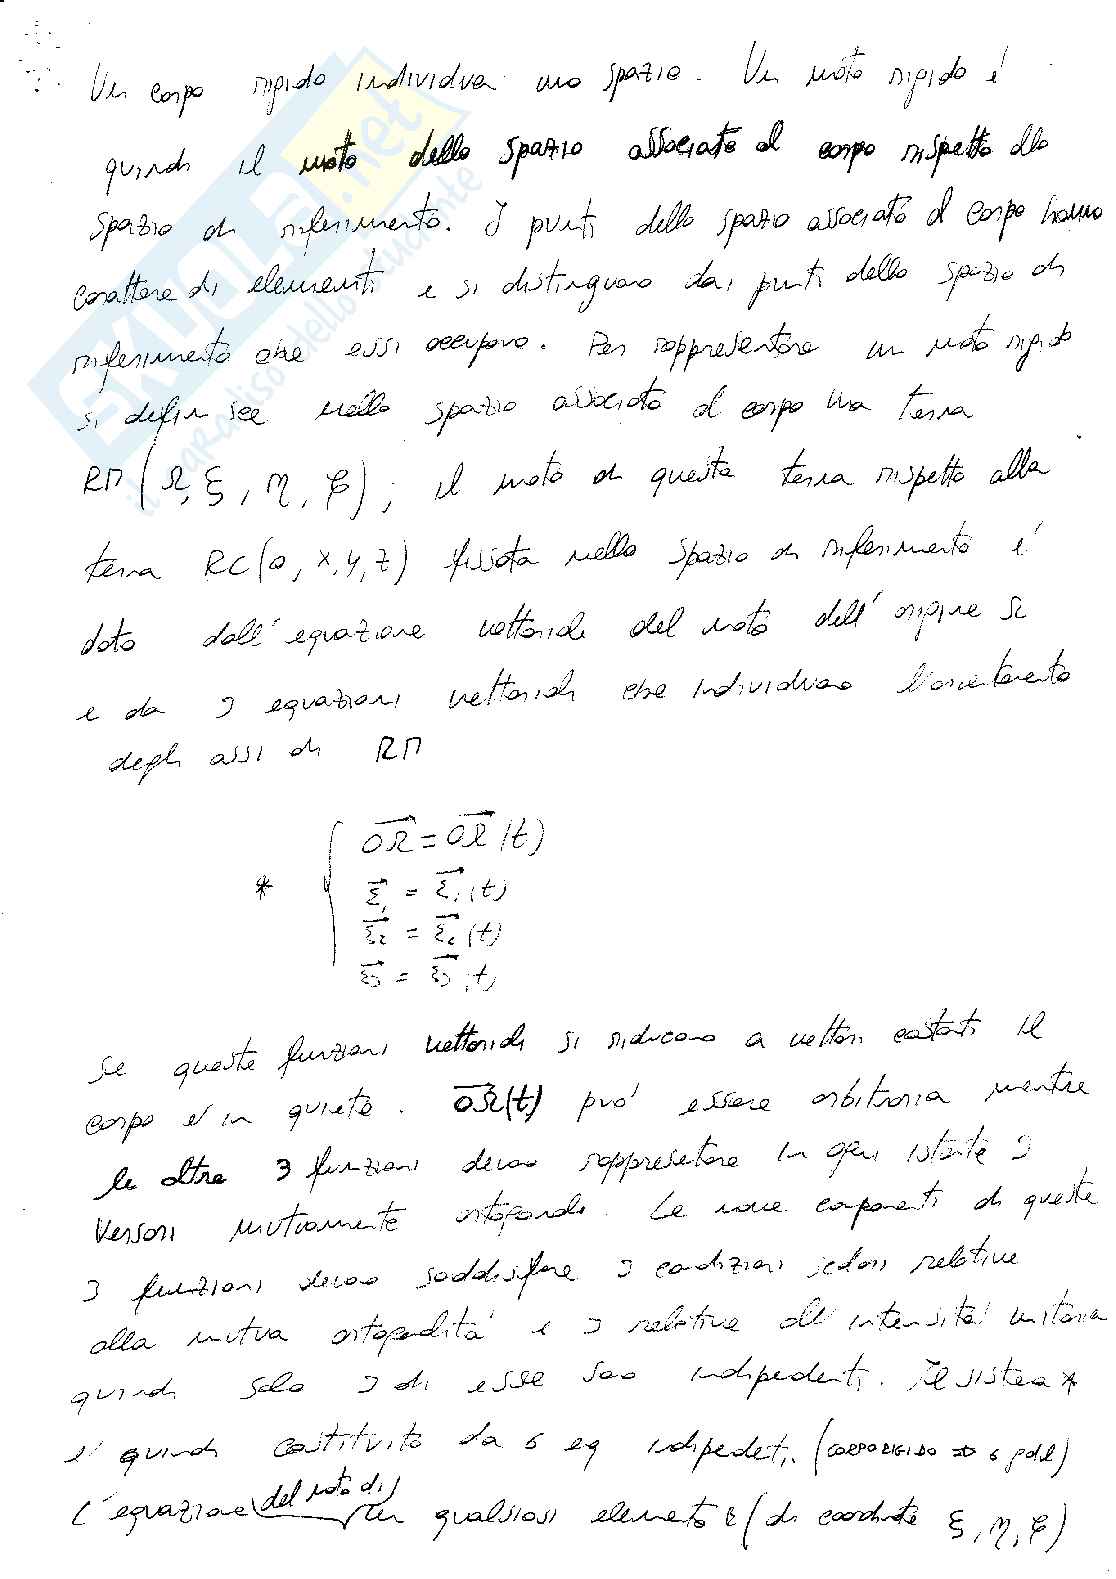 Un corpo rigido individua uno spazio. Un moto rigido é
quindi il moto dello spazio associato al corpo rispetto allo
spazio di riferimento. I punti dello spazio associato al corpo hanno
carattere di elementi e si distinguono dai punti dello spazio di
riferimento che essi occupano. Per rappresentare un moto rigido
si definisce nello spazio associato al corpo una terna
RM (Ω, ξ, η, ζ); il moto di questa terna rispetto alla
terna RC (O, x, y, z) fissata nello spazio di riferimento é
dato dall'equazione vettoriale del moto dell'origine Ω
e da 3 equazioni vettoriali che individuano l'orientamento
degli assi di RM
OΩ = OΩ (t)
* ε1 = ε1 (t)
ε2 = ε2 (t)
ε3 = ε3 (t)
Se queste funzioni vettoriali si riducono a vettori costanti il
corpo é in quiete. OΩ(t) puó essere arbitraria mentre
le altre 3 funzioni devono rappresentare in ogni istante 3
versori mutuamente ortogonali. Le nove componenti di queste
3 funzioni devono soddisfare 3 condizioni scalari relative
alla mutua ortogonalitá e 3 relative all'intensitá unitaria
quindi solo 3 di esse sono indipendenti. Il sistema *
é quindi costituito da 6 eq indipendenti. (CORPO RIGIDO => 6 gdl)
L'equazione del moto di un qualsiasi elemento (di coordinate ξ, η, ζ)
SKUOLA.net
il paradiso dello studente